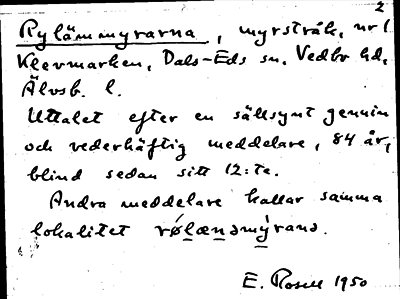 2
Rylämmyrarna, myrstråk, nr 1
Klevmarken, Dals-Eds sn. Vedbo hd,
Älvsb. l.
Uttalet efter en sällsynt genuin
och vederhäftig meddelare, 84 år,
blind sedan sitt 12:te.
Andra meddelare kallar samma
lokalitet
E. Rosell 1950